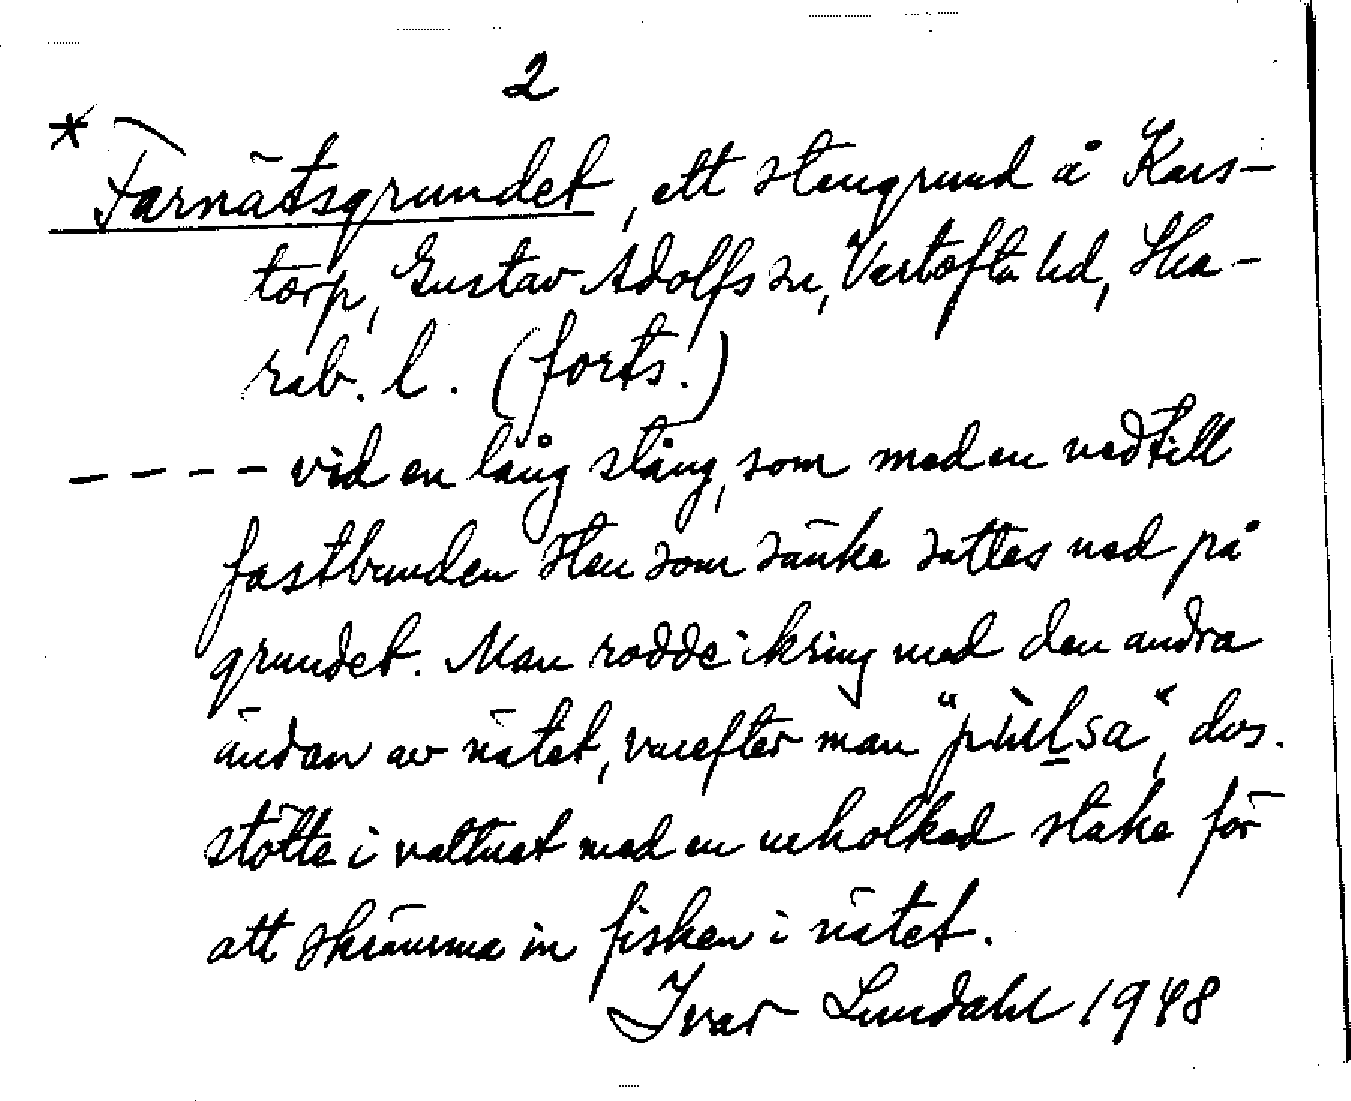 2
* Farnätsgrundet, ett stengrund å Kars-
torp, Gustav Adolfs sn, Vartofta hd, Ska-
rab. l. (forts.)
- - - - vid en lång stång, som med en nedtill
fastbunden sten som sänke sattes ned på
grundet. Man rodde ikring med den andra
ändan av nätet, varefter man "pulsa", dvs.
stötte i vattnet med en urholkad stake för
att skrämma in fisken i nätet.
Ivar Lundahl 1948